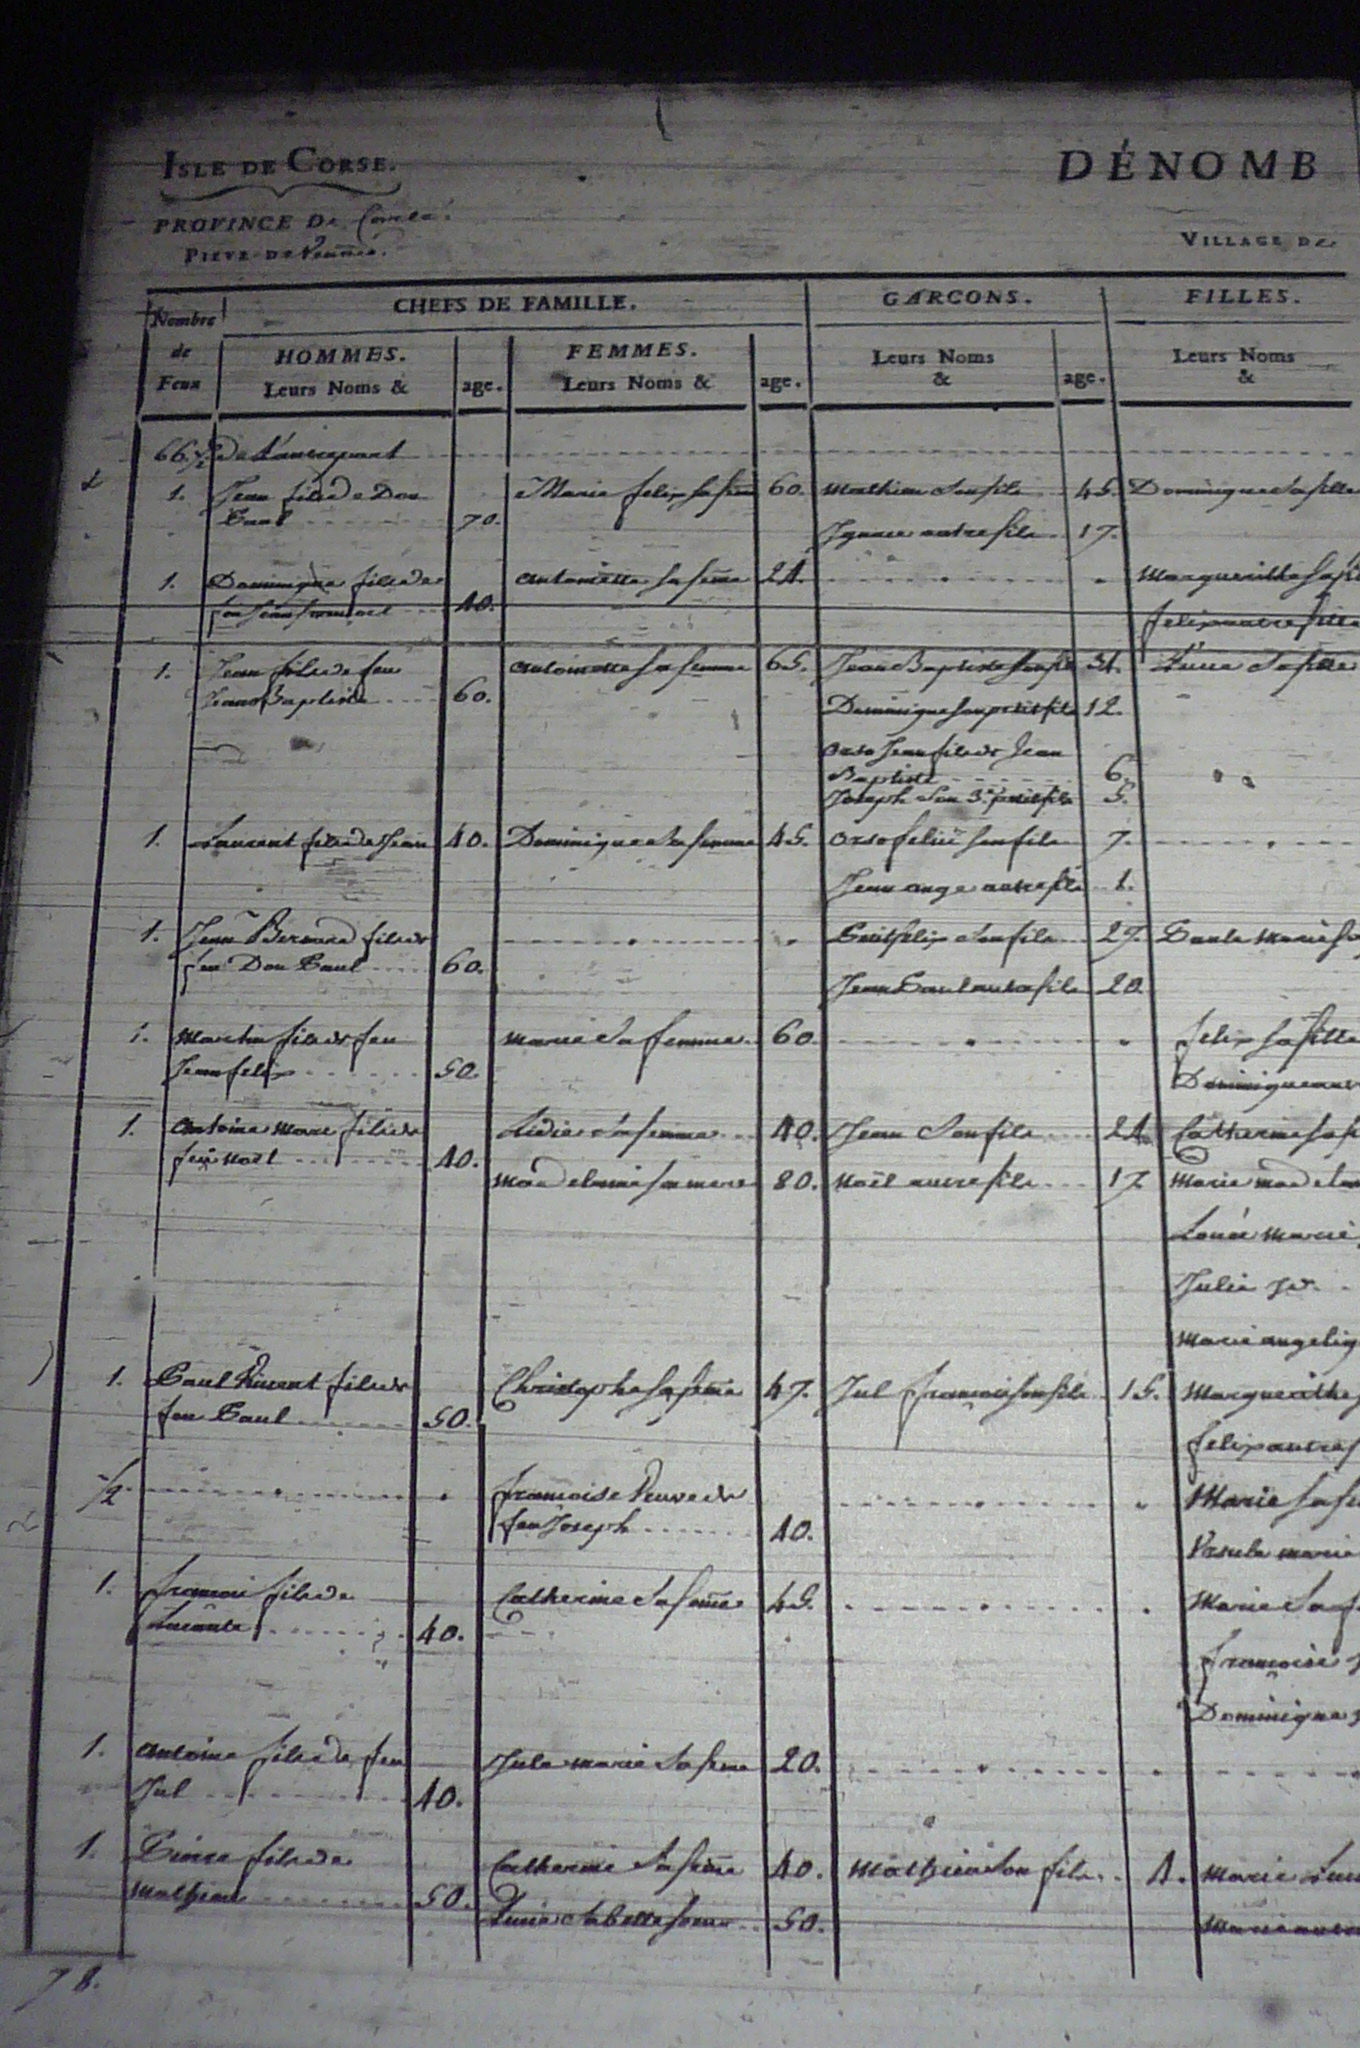 ISLE DE CORSE.
DÉNOMB
PROVINCE De
PIEVE DE
VILLAGE DE
Nombre de Feux
CHEFS DE FAMILLE.
GARCONS.
FILLES.
HOMMES. Leurs Noms &
age.
FEMMES. Leurs Noms &
age.
Leurs Noms &
age.
Leurs Noms &
66.½ de
1. Jean fils de Don Marie felix sa fem̃e 60. Mathieu son fils 45. Dominique sa fille
Paul 70. Ignace autre fils 17.
1. Dominique fils de Antoinette sa fem̃e 24. Marguerithe sa fi
feu 40. felix autre fille
1. Jean fils de feu Antoinette sa femme 65. Jean Baptiste son fils 31. Lucie sa fille
Jean Baptiste 60. Dominique son petit fils 12.
Orso Jean fils de Jean
Baptiste 6.
Joseph son 3.e petit fils 5.
1. Laurent fils de Jean 40. Dominique sa femme 45. Orso felix son fils 7.
Jean ange autre fils 1.
1. Jean Bernard fils de Petit felix son fils 27. Paule Marie
feu Don Paul 60. Jean Paul autre fils 20.
1. Martin fils de feu Marie sa femme 60. felix sa fille
Jean felix 50. Dominique
1. Antoine Marc fils de Lidie sa femme 40. Jean son fils 24. Catherine sa fi
feu Noël 40. Madelaine sa mere 80. Noël autre fils 17. Marie Madelai
Marie
Julie
Marie angeliq
1. Paul Vincent fils de Christophe sa fem̃e 47. Jul françois son fils 15. Marguerithe
feu Paul 50. felix autre f
½ françoise Veuve de Marie sa fi
feu Joseph 40. Ursule marie
1. françois fils de Catherine sa fem̃e 45. Marie sa f
40. françoise
Dominique
1. Antoine fils de feu Jule marie sa fem̃e 20.
Jul 40.
1. Pierre fils de Catherine sa fem̃e 40. Mathieu son fils 4. Marie
Mathieu 50. Lucie sa belle soeur 50. Marie
78.